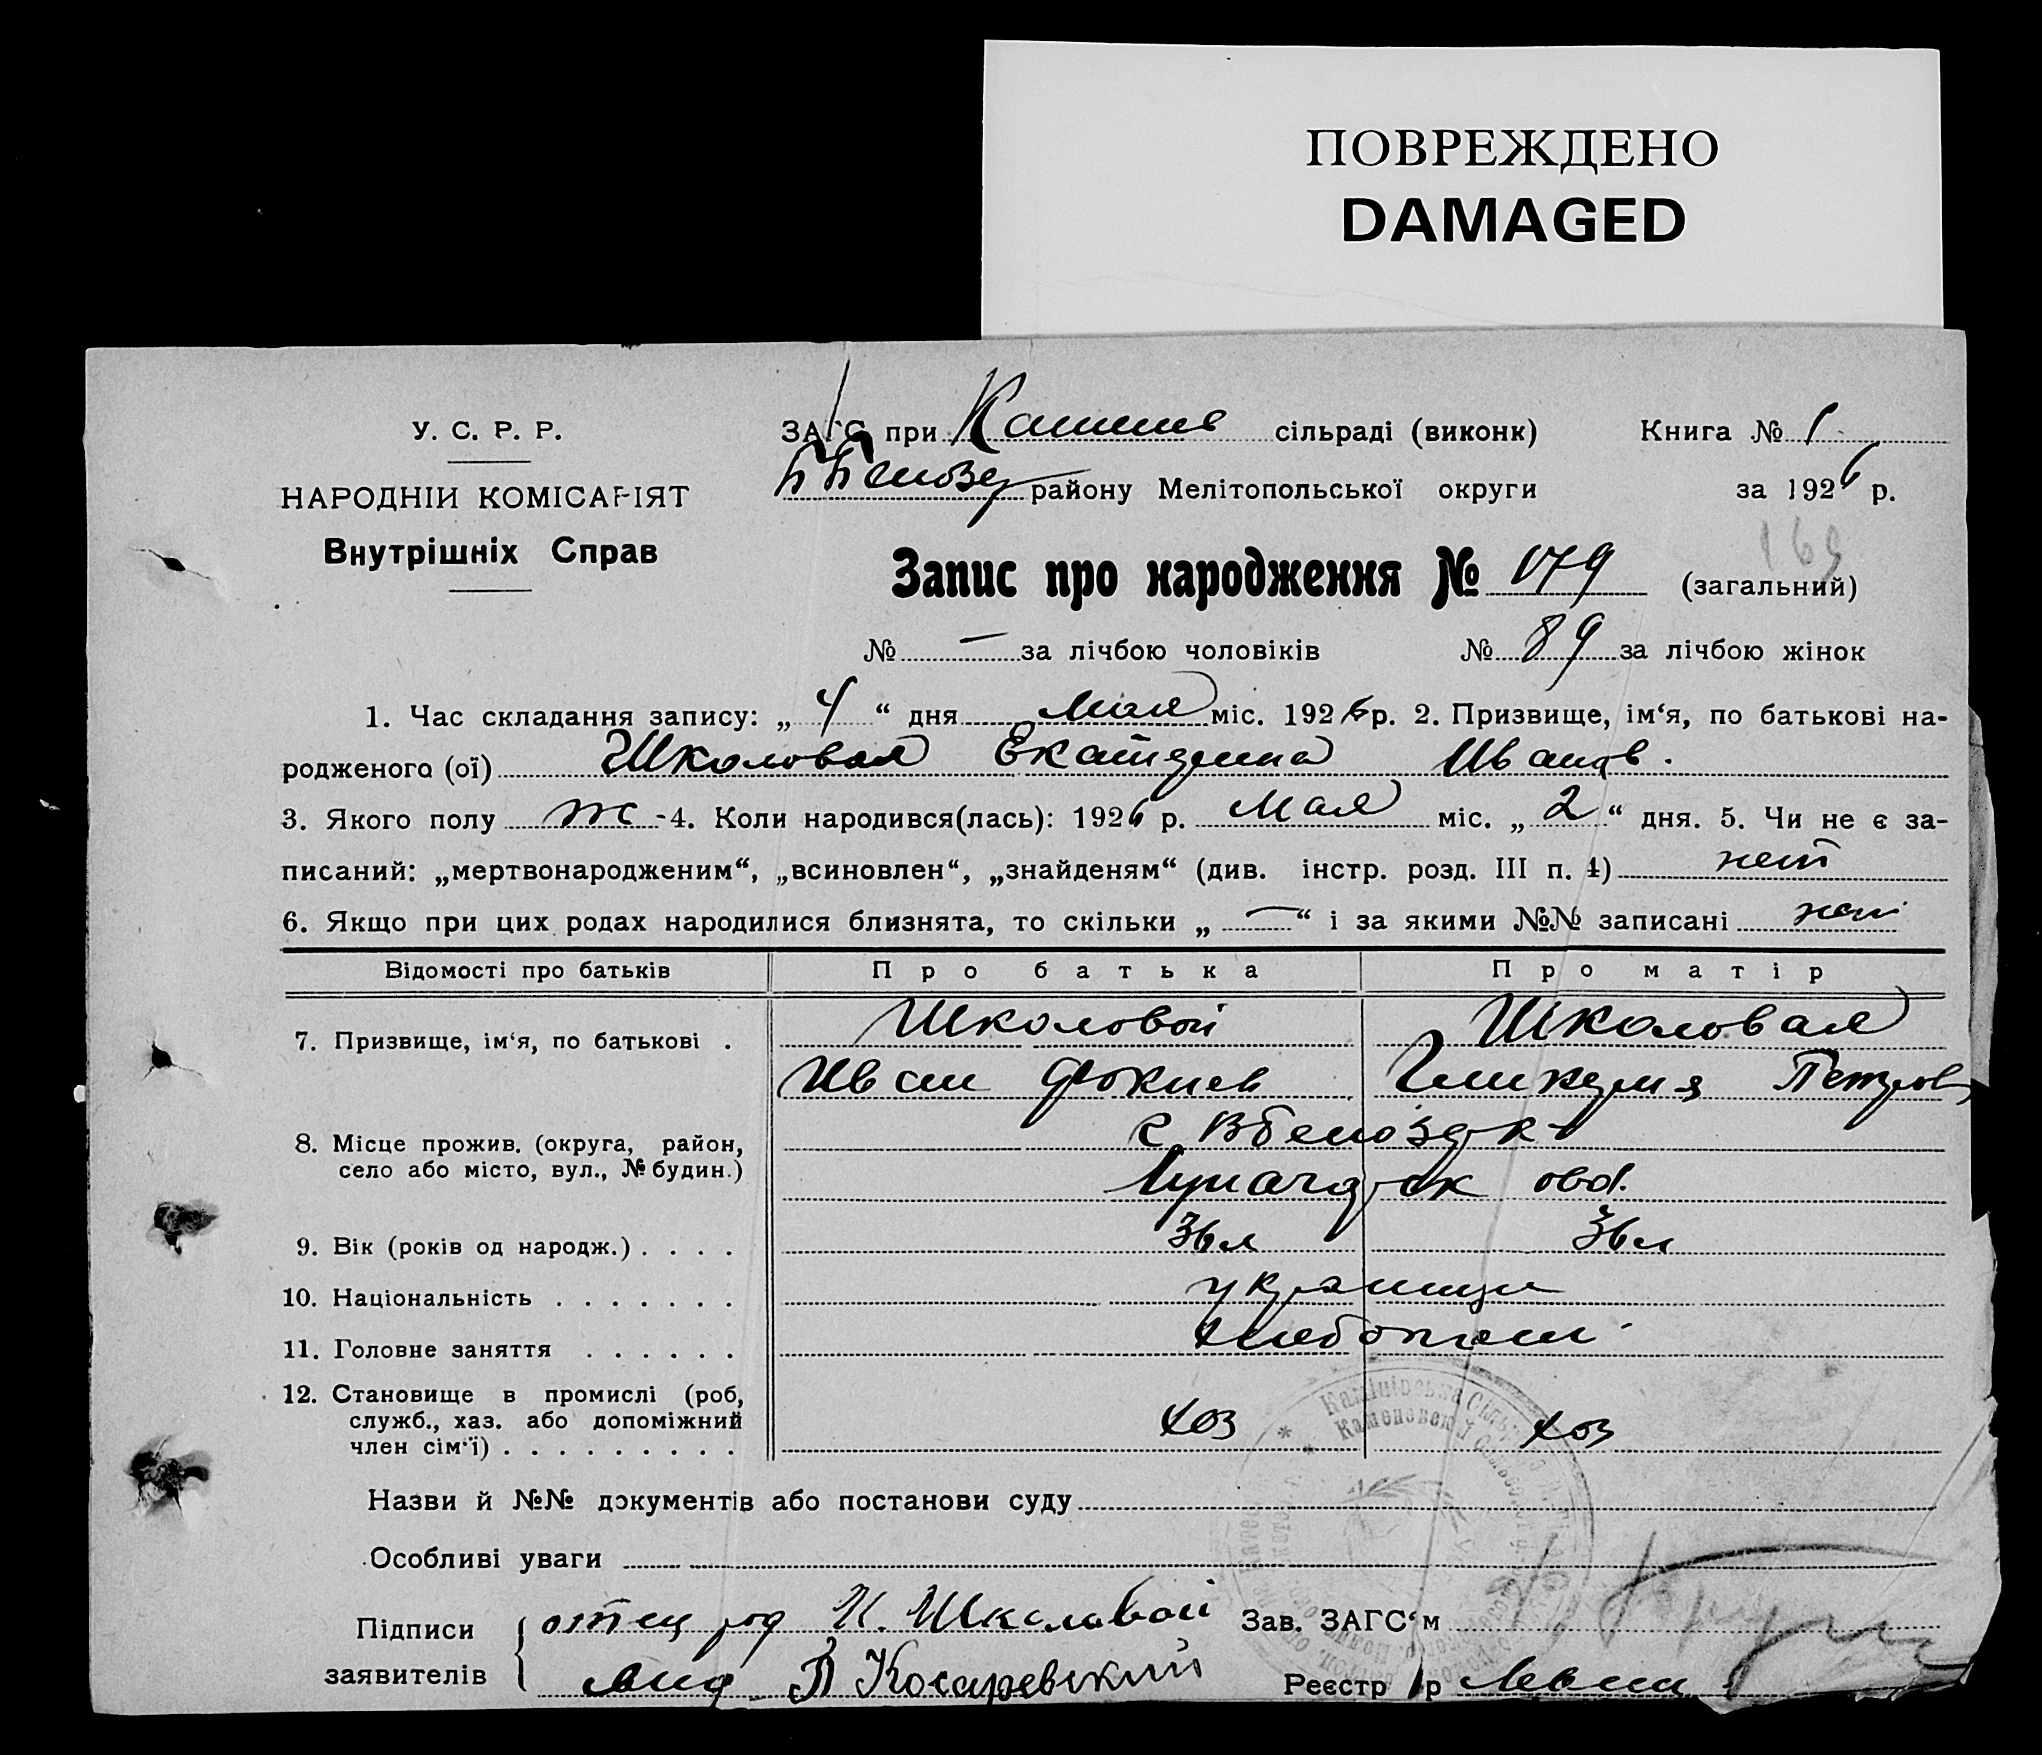 ПОВРЕЖДЕНО
DAMAGED
У. С. Р. Р.
НАРОДНІЙ КОМІСАРІЯТ
Внутрішніх Справ
ЗАГС при сільраді (виконк) Книга № 1
району Мелітопольської округи за 1926 р.
169
Запис про народження № 179 (загальний)
№ — за лічбою чоловіків № 89 за лічбою жінок
1. Час складання запису: „ 4 “ дня Мая міс. 1926 р. 2. Призвище, ім‘я, по батькові на-
родженого (ої) Школовая Екатерина Иванов.
3. Якого полу ж - 4. Коли народився(лась): 1926 р. Мая міс. „ 2 “ дня. 5. Чи не є за-
писаний: „мертвонародженим“, „всиновлен“, „знайденям“ (див. інстр. розд. III п. 4) нет
6. Якщо при цих родах народилися близнята, то скільки „ — “ і за якими №№ записані нет
Відомості про батьків Про батька Про матір
7. Призвище, ім‘я, по батькові . Школовой Школовая
Иван Фокиев Гликерия Петров
8. Місце прожив. (округа, район, с.
село або місто, вул., № будин.)
9. Вік (років од народж.) . . . . 36 л 36 л
10. Національність . . . . . . . украинцы
11. Головне заняття . . . . . . хлебопаш.
12. Становище в промислі (роб,
служб., хаз. або допоміжний хоз хоз
член сім‘ї) . . . . . . . . .
Назви й №№ документів або постанови суду
Особливі уваги
Підписи отец И. Школовой Зав. ЗАГС‘м
заявителів В Косаревский Реєстр р